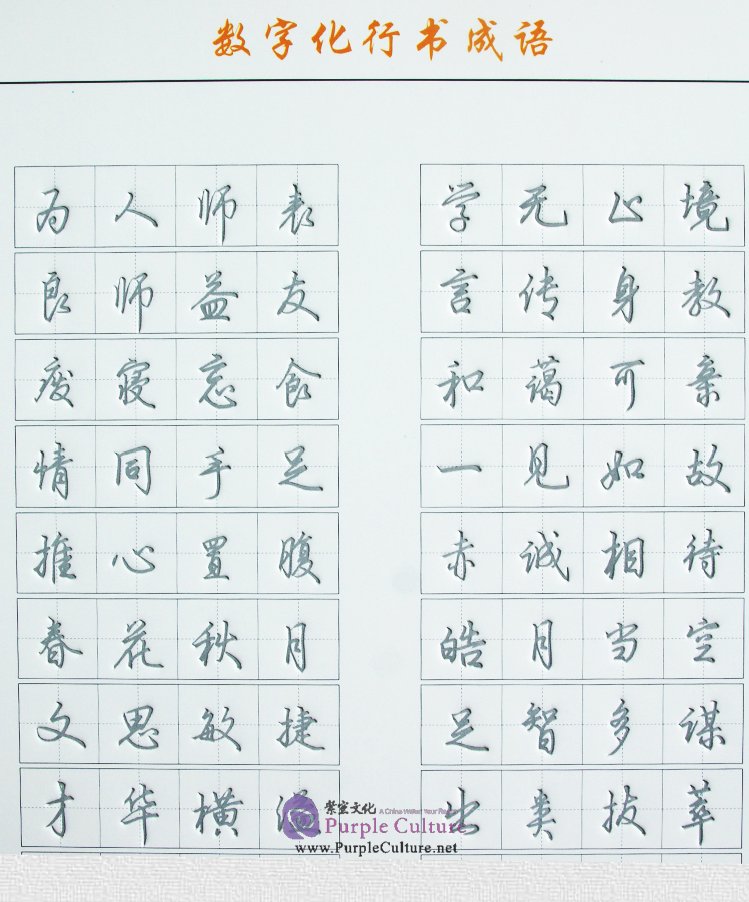 数字化行书成语
为人师表
良师益友
废寝忘食
情同手足
推心置腹
春花秋月
文思敏捷
才华横
学无止境
言传身教
和蔼可亲
一见如故
赤诚相待
皓月当空
足智多谋
出类拔萃
Purple Culture
www.PurpleCulture.net